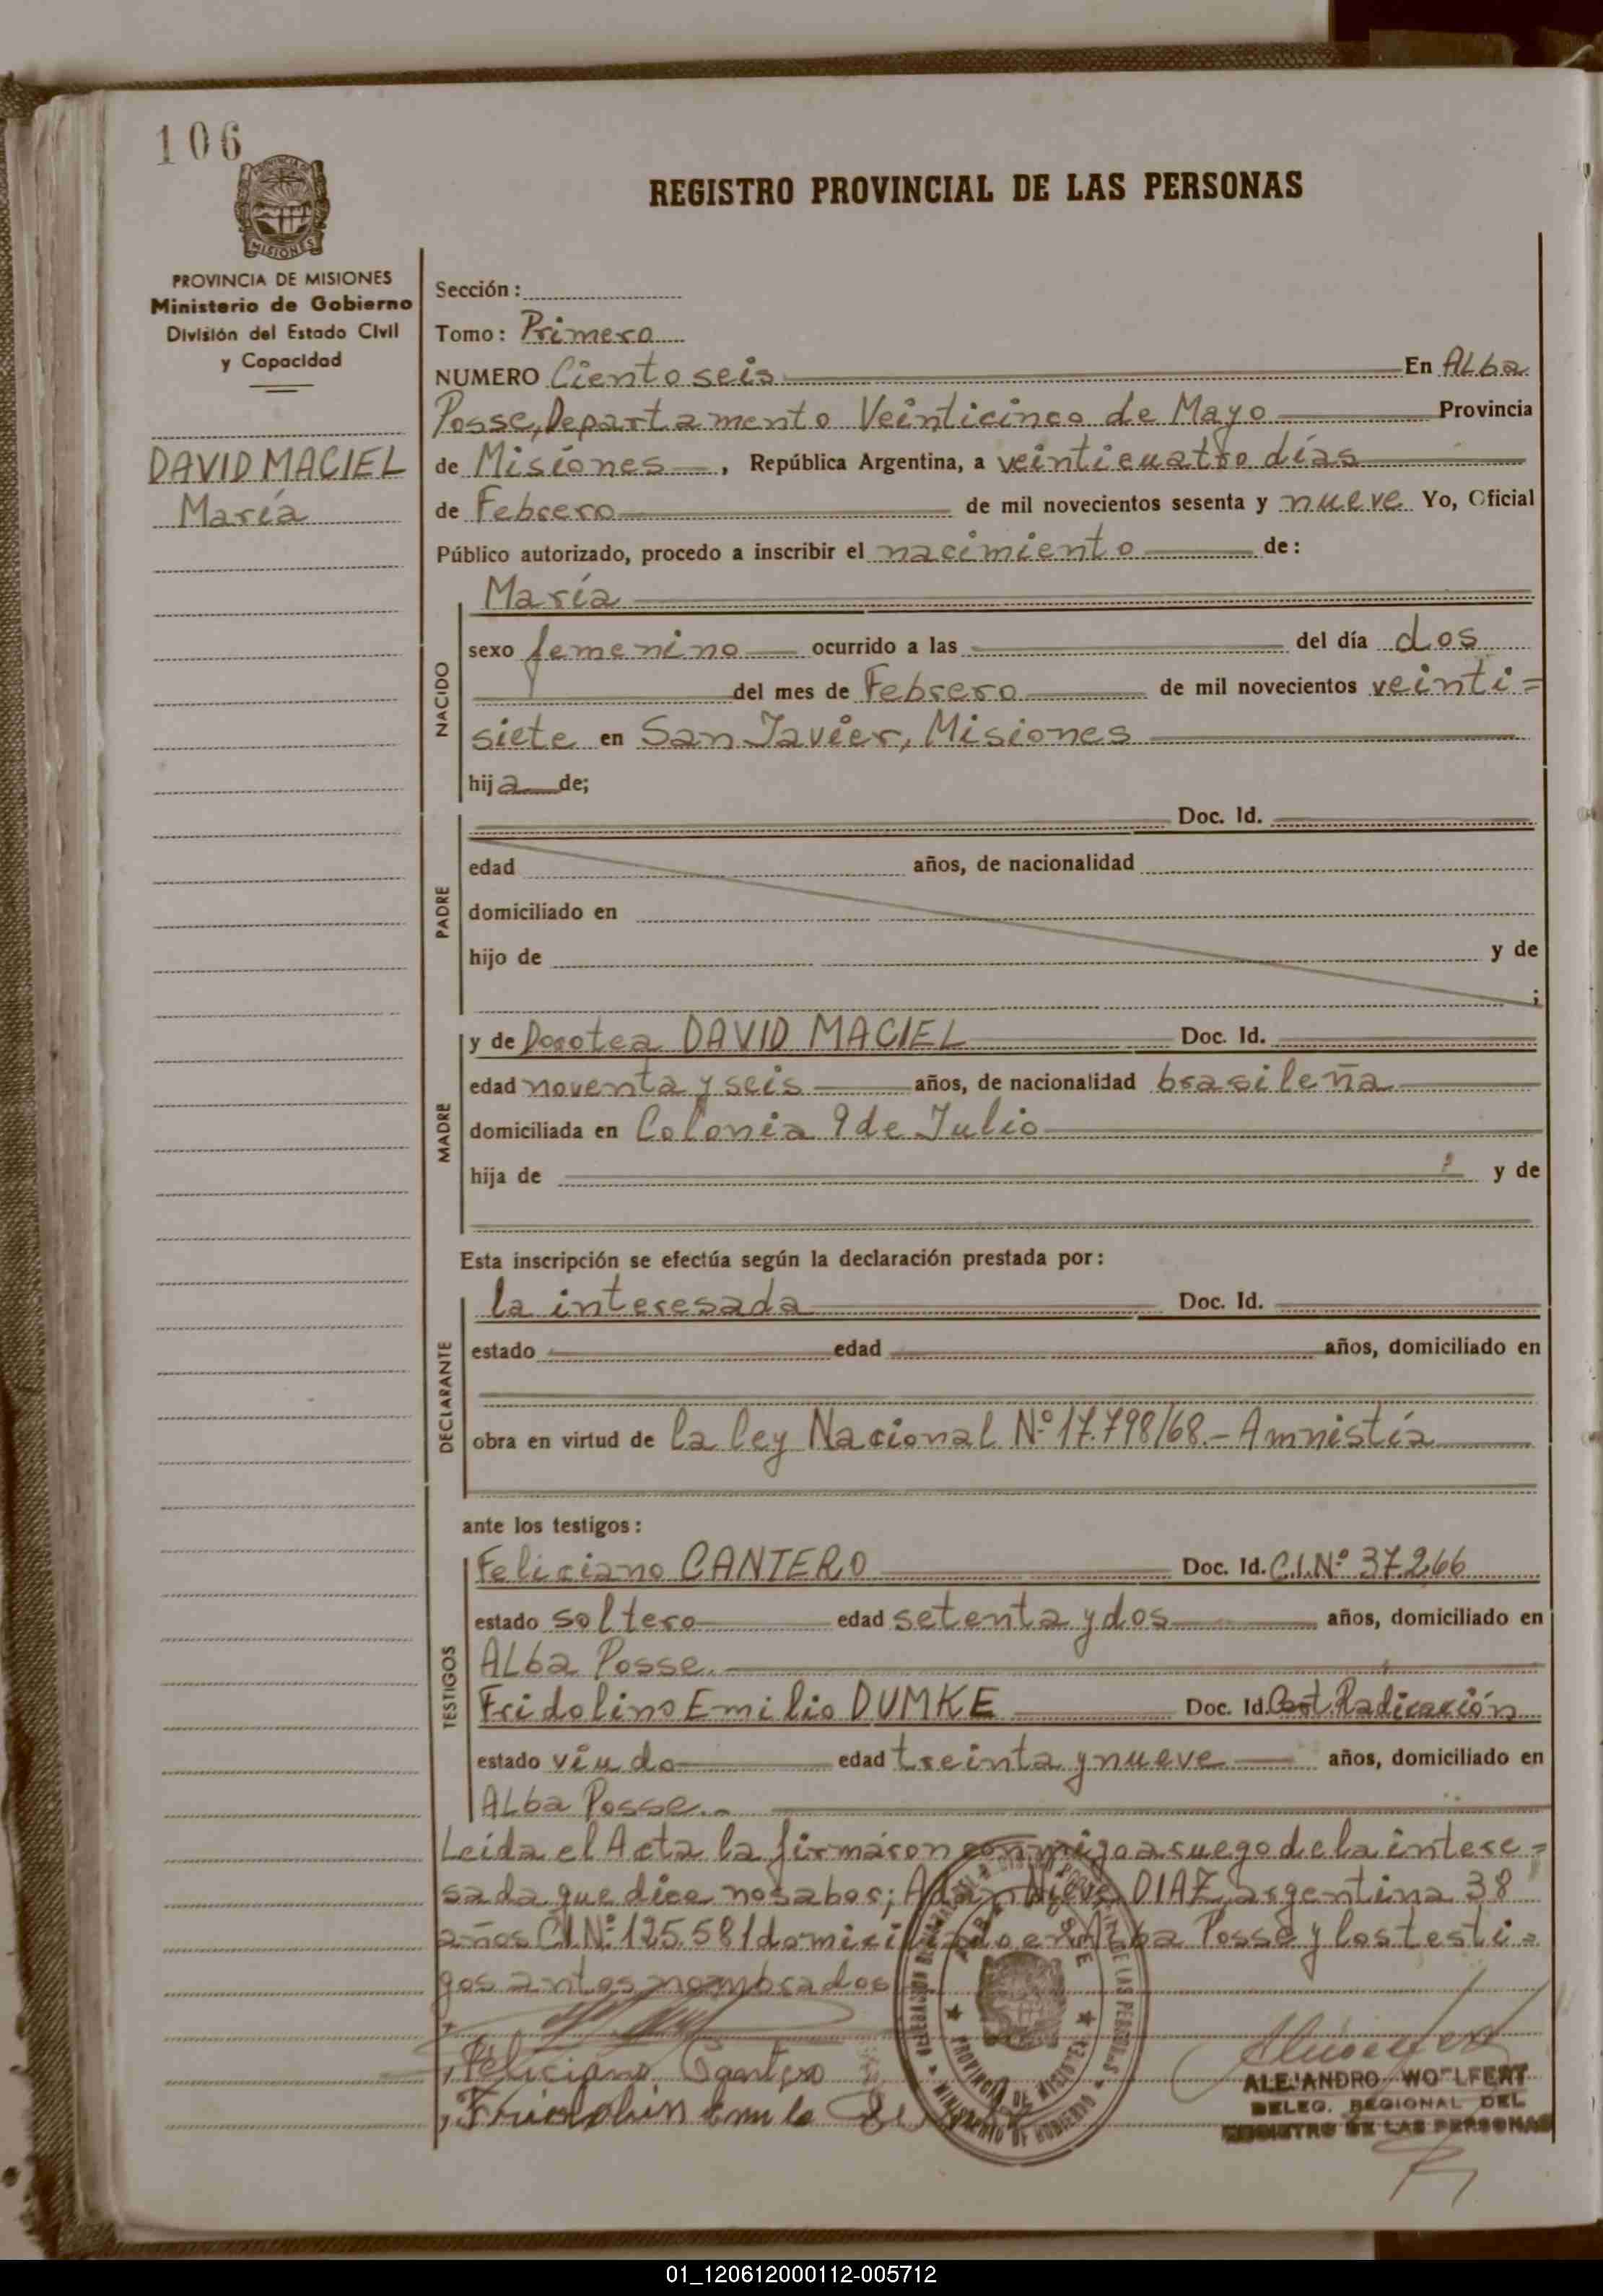 106
MISIONES
PROVINCIA DE MISIONES
Ministerio de Gobierno
División del Estado Civil
y Capacidad
DAVID MACIEL
María
REGISTRO PROVINCIAL DE LAS PERSONAS
Sección:
Tomo: Primero
NUMERO Ciento seis En Alba
Posse, Departamento Veinticinco de Mayo Provincia
de Misiones, República Argentina, a veinticuatro días
de Febrero de mil novecientos sesenta y nueve Yo, Oficial
Público autorizado, procedo a inscribir el nacimiento de:
María
NACIDO
sexo femenino ocurrido a las del día dos
del mes de Febrero de mil novecientos veinti=
siete en San Javier, Misiones
hija de;
Doc. Id.
PADRE
edad años, de nacionalidad
domiciliado en
hijo de y de
;
y de Dorotea DAVID MACIEL Doc. Id.
MADRE
edad noventa y seis años, de nacionalidad brasileña
domiciliada en Colonia 9 de Julio
hija de y de
Esta inscripción se efectúa según la declaración prestada por:
la interesada Doc. Id.
DECLARANTE
estado edad años, domiciliado en
obra en virtud de la ley Nacional Nº 17.798/68.- Amnistía
ante los testigos:
TESTIGOS
Feliciano CANTERO Doc. Id. C.I.Nº 37.266
estado soltero edad setenta y dos años, domiciliado en
Alba Posse.
Fridolino Emilio DUMKE Doc. Id. Cert. Radicación
estado viudo edad treinta y nueve años, domiciliado en
Alba Posse.-
Leída el Acta la firmáron conmigo a ruego de la intere=
sada que dice no saber; DIAZ, argentina 38
años C.I.Nº 125.581 domiciliado en Alba Posse y los testi=
gos antes nombrados
Feliciano Cantero
ALEJANDRO WOELFERT
DELEG. REGIONAL DEL
REGISTRO DE LAS PERSONAS
PROVINCIA DE MISIONES
MINISTERIO DE GOBIERNO
01_120612000112-005712